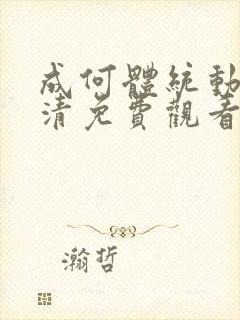 成何體統動
清免費觀看
瀚哲